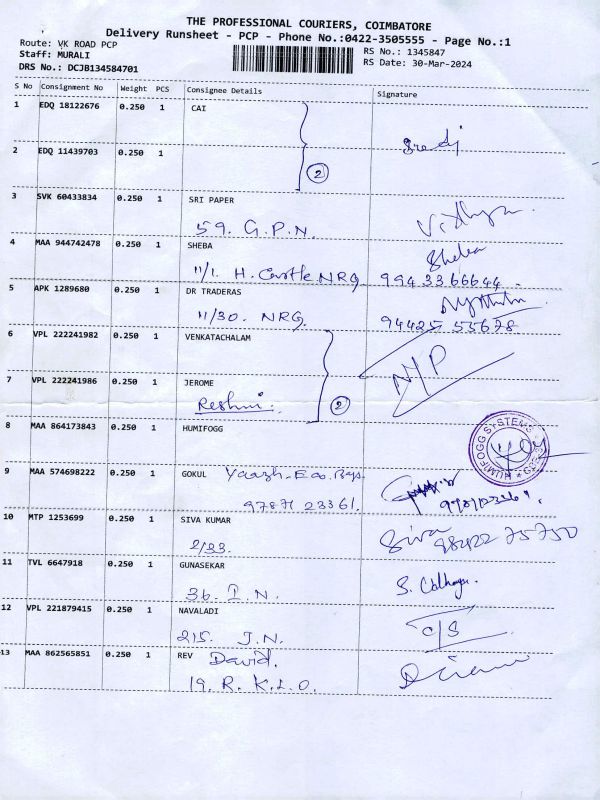 THE PROFESSIONAL COURIERS, COIMBATORE
Delivery Runsheet - PCP - Phone No.:0422-3505555 - Page No.:1
Route: VK ROAD PCP
Staff: MURALI
DRS No.: DCJB134584701
RS No.: 1345847
RS Date: 30-Mar-2024
S No Consignment No Weight PCS Consignee Details Signature
1 EDQ 18122676 0.250 1 CAI
2 EDQ 11439703 0.250 1
2
3 SVK 60433834 0.250 1 SRI PAPER
59. G.P.N.
4 MAA 944742478 0.250 1 SHEBA
11/1. H. Castle NRG 99433 66644
5 APK 1289680 0.250 1 DR TRADERAS
11/30. NRG. 94425 55678
6 VPL 222241982 0.250 1 VENKATACHALAM
N/P
7 VPL 222241986 0.250 1 JEROME
Reshmi. 2
8 MAA 864173843 0.250 1 HUMIFOGG
HUMIFOGG SYSTEMS
9 MAA 574698222 0.250 1 GOKUL
97871 23361.
10 MTP 1253699 0.250 1 SIVA KUMAR
Siva 98422 75750
2/23.
11 TVL 6647918 0.250 1 GUNASEKAR
36. I. N.
12 VPL 221879415 0.250 1 NAVALADI
215. J.N. C/S
13 MAA 862565851 0.250 1 REV David.
19. R. K. L. O.